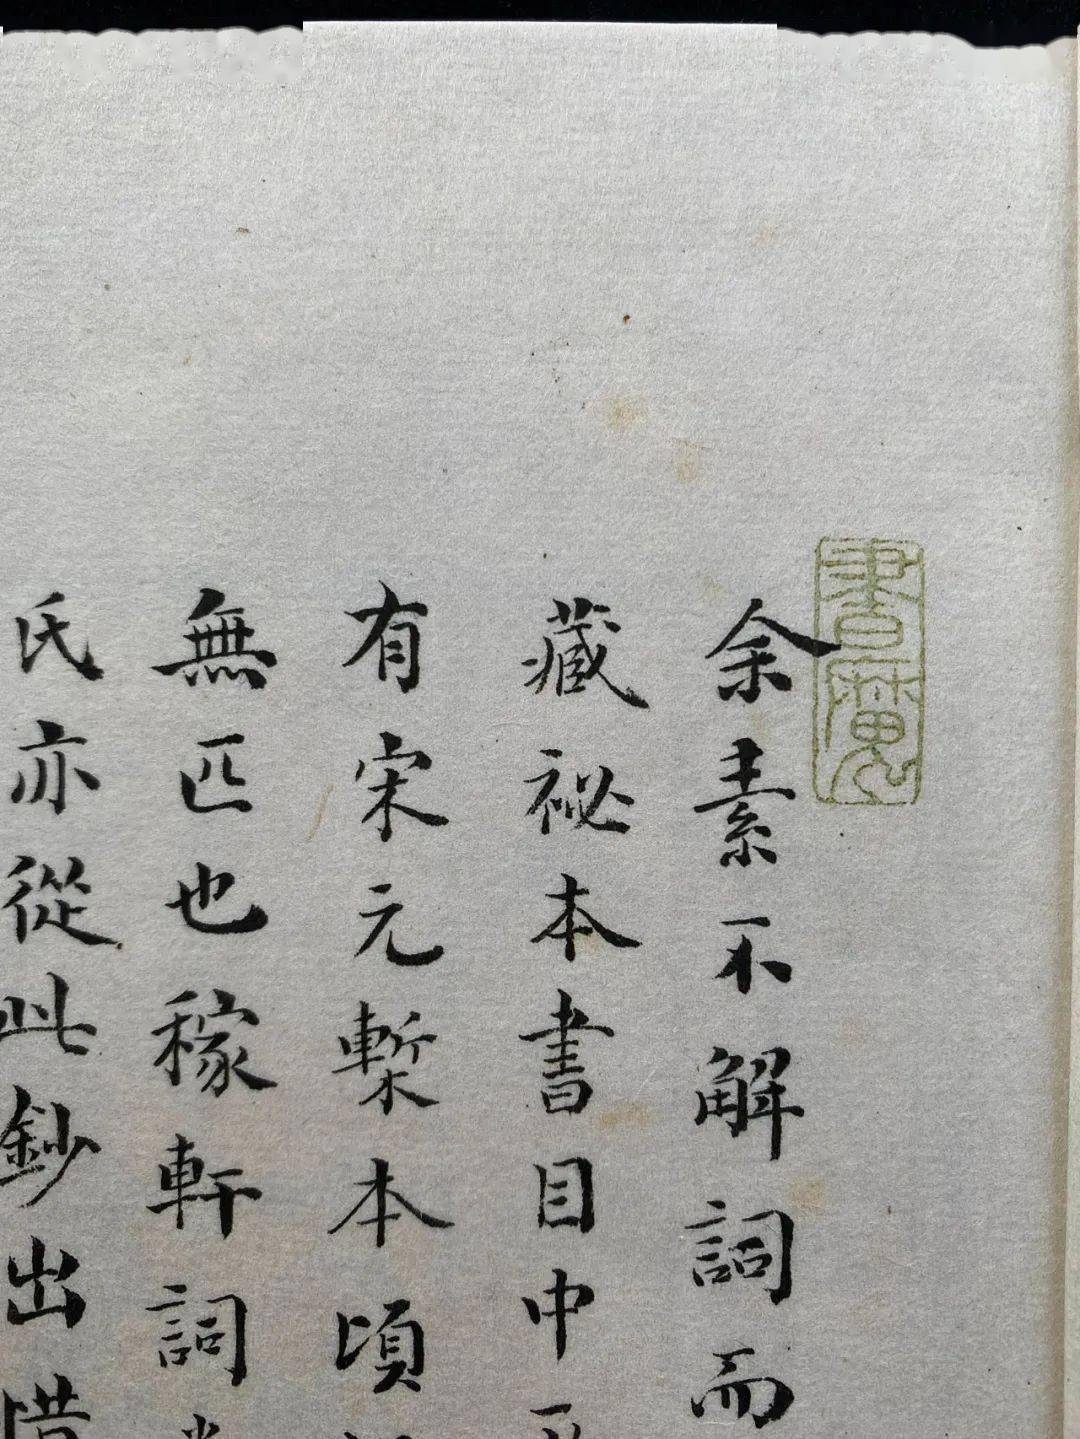 書魔
余素不解詞而
藏祕本書目中
有宋元槧本頃
無匹也稼軒詞
氏亦從此鈔出惜